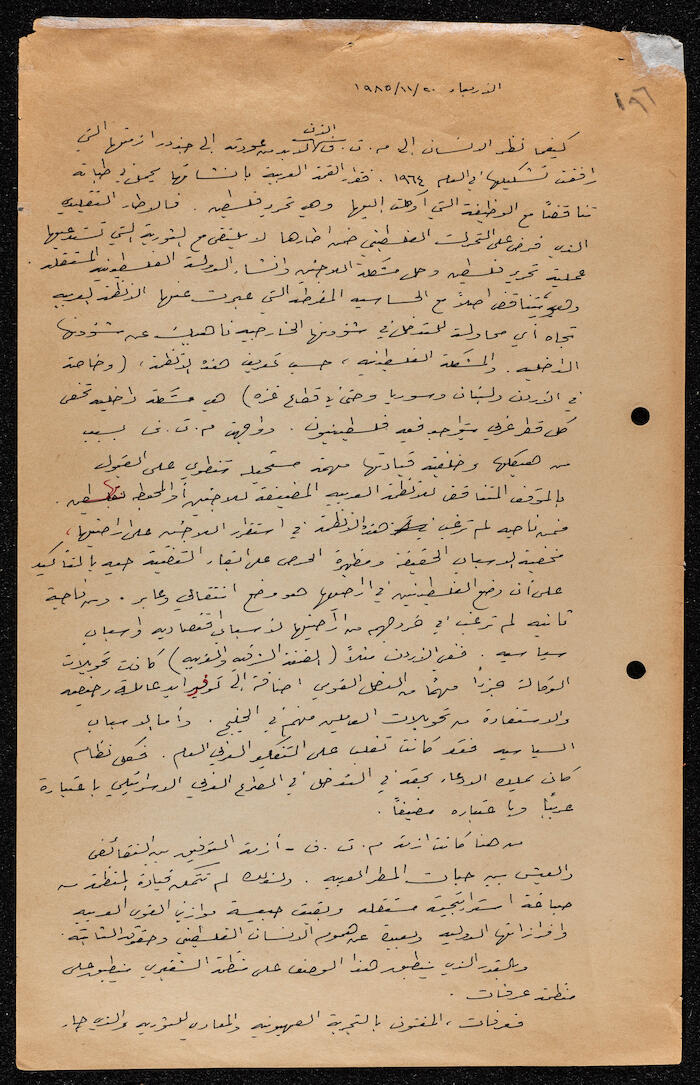 ١٩٦
الأربعاء ٢٠/١١/١٩٨٥
كيفما نظر الانسان إلى م. ت. ف. الآن لا بد من عودته إلى جذور ازمتها التي
رافقت تشكيلها في العام ١٩٦٤. فقرار القمة العربية بإنشائها يحمل في طياته
تناقضاً مع الوظيفة التي أوكلت إليها وهي تحرير فلسطين. فالإطار التقليدي
الذي فرض على التحرك الفلسطيني ضمن اطارها لا يلتقي مع الثورية التي تستدعيها
عملية تحرير فلسطين وحل مشكلة اللاجئين وانشاء الدولة الفلسطينية المستقلة.
وهو يتناقض اصلاً مع الحساسية المفرطة التي عبرت عنها الأنظمة العربية
تجاه أي محاولة للتدخل في شؤونها الخارجية ناهيك عن شؤونها
الداخلية. والمشكلة الفلسطينية، حسب تعريف هذه الأنظمة، (وخاصة
في الأردن ولبنان وسوريا وحتى في قطاع غزه) هي مشكلة داخلية تخص
كل قطر عربي يتواجد فيه فلسطينيون. وواجهت م. ت. ف. بسبب
من هيكلها وخلفية قيادتها مهمة مستحيلة تنطوي على القبول
بالموقف المتناقض للأنظمة العربية المضيفة للاجئين أو المحيطة بفلسطين.
فمن ناحية لم ترغب هذه الأنظمة في استقرار اللاجئين على اراضيها،
مخفية الاسباب الحقيقة ومظهرة الحرص على ابقاء القضية حية بالتأكيد
على أن وضع الفلسطينيين في أراضيها هو وضع انتقالي وعابر. ومن ناحية
ثانية لم ترغب في خروجهم من أراضيها لأسباب اقتصادية واسباب
سياسية. ففي الأردن مثلاً (الضفة الشرقية والغربية) كانت تحويلات
الوكالة جزءاً مهماً من الدخل القومي اضافة إلى توفير ايد عاملة رخيصة
والاستفادة من تحويلات العاملين منهم في الخليج. وأما الاسباب
السياسية فقد كانت تغلب على التفكير العربي العام. فكل نظام
كان يملك الادعاء بحقه في التدخل في الصراع العربي الاسرائيلي باعتباره
عربياً وباعتباره مضيفاً.
من هنا كانت ازمة م. ت. ف - أزمة التوفيق بين النقائض
والعيش بين حبات المطر العربية. ولذلك لم تتمكن قيادة المنظمة من
صياغة استراتيجية مستقلة وبقيت حبيسة موازين القوى العربية
وافرازاتها الدولية وبعيدة عن هموم الانسان الفلسطيني وحقوقه الثابتة.
وبالقدر الذي ينطبق هذا الوصف على منظمة الشقيري ينطبق على
منظمة عرفات.
فعرفات، المفتون بالتجربة الصهيونية والمعادي للثورية والذي